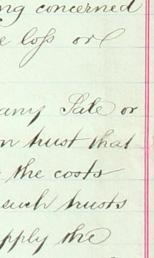 ng concerned
e loſs or
any Sale or
on trust that
the costs
such trusts
apply the